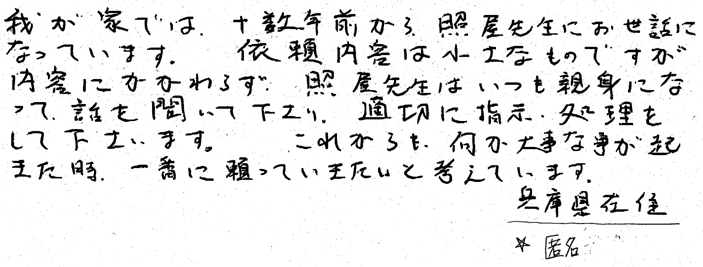 我が家では、十数年前から、照屋先生にお世話に
なっています。 依頼内容は小さなものですが
内容にかかわらず、照屋先生はいつも親身にな
って、話を聞いて下さり、適切に指示・処理を
して下さいます。 これからも、何か大事な事が起
きた時、一番に頼っていきたいと考えています。
兵庫県在住
☆ 匿名